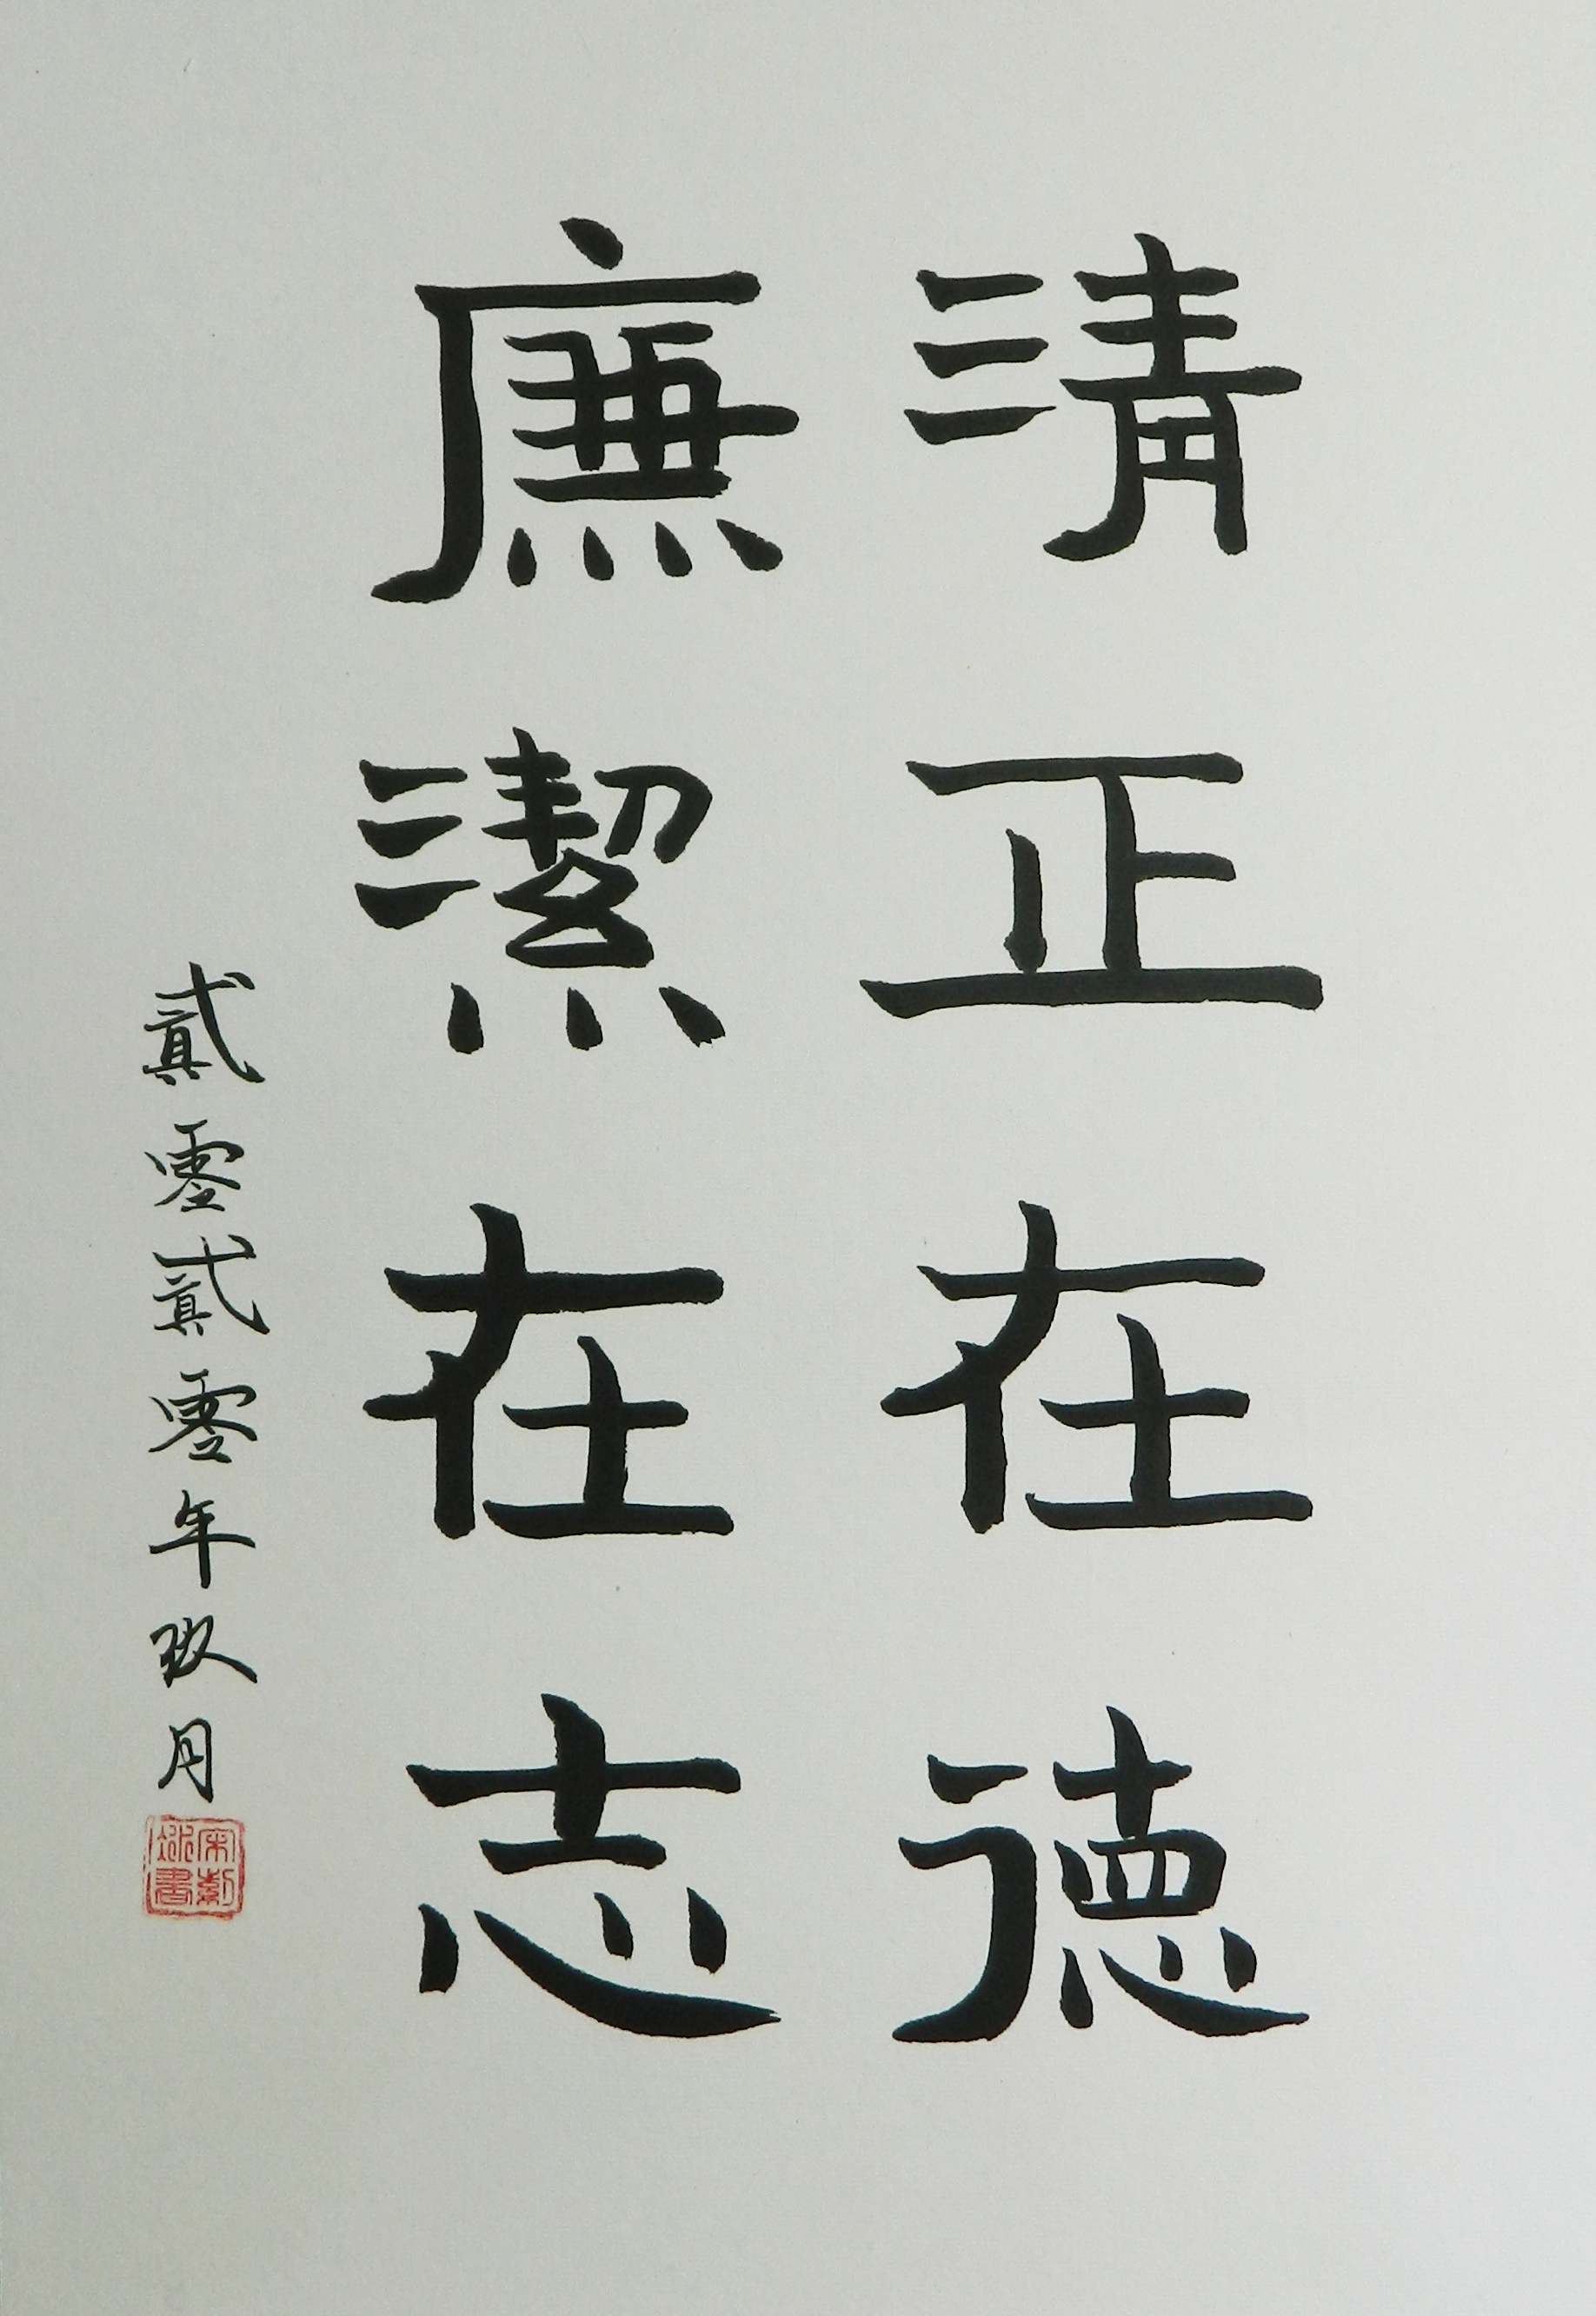 清正在德
廉潔在志
貳零貳零年玖月